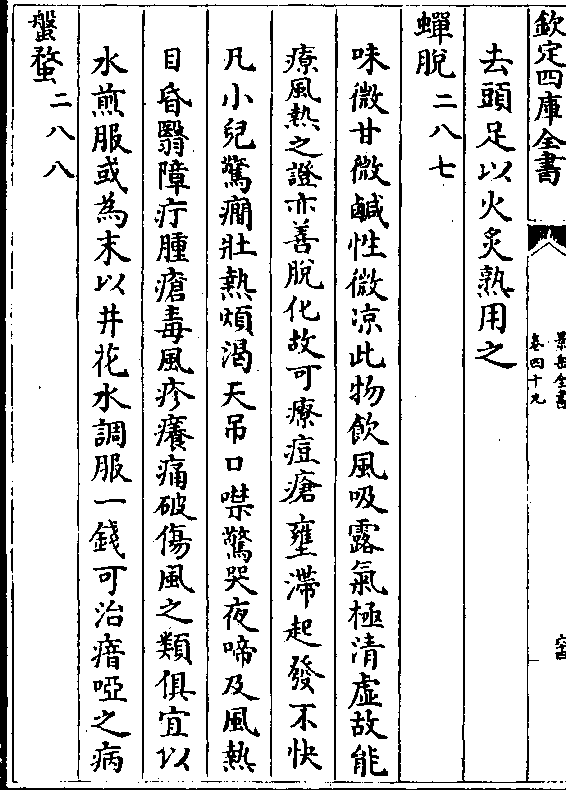 欽定四庫全書
景岳全書
卷四十九
去頭足以火炙熟用之
蟬脫二八七
味微甘微鹹性微凉此物飲風吸露氣極清虛故能
療風熱之證亦善脫化故可療痘瘡壅滯起發不快
凡小兒驚癇壯熱煩渴天吊口噤驚哭夜啼及風熱
目昏翳障疔腫瘡毒風疹癢痛破傷風之類俱宜以
水煎服或為末以井花水調服一錢可治瘖啞之病
盤蝥二八八